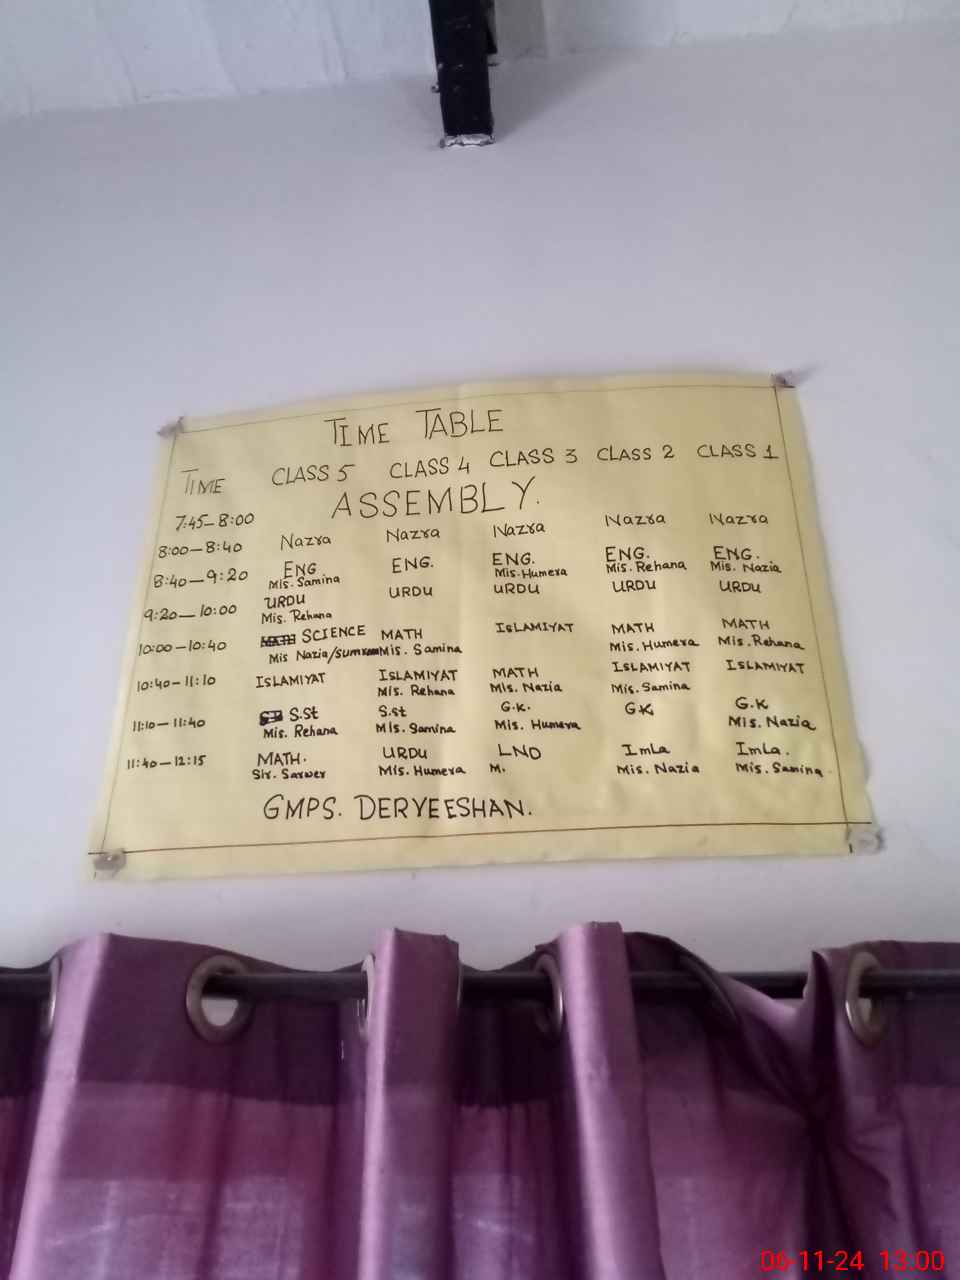 TIME TABLE
TIME CLASS 5 CLASS 4 CLASS 3 CLASS 2 CLASS 1
ASSEMBLY.
7:45–8:00
8:00–8:40 Nazra Nazra Nazra Nazra Nazra
8:40–9:20 ENG ENG. ENG. ENG. ENG.
Mis. Samina Mis. Humera Mis. Rehana Mis. Nazia
9:20–10:00 URDU URDU URDU URDU URDU
Mis. Rehana
10:00–10:40 SCIENCE MATH ISLAMIYAT MATH MATH
Mis Nazia/ Mis. Samina Mis. Humera Mis. Rehana
10:40–11:10 ISLAMIYAT ISLAMIYAT MATH ISLAMIYAT ISLAMIYAT
Mis. Rehana Mis. Nazia Mis. Samina
11:10–11:40 S.St S.st G.K. GK G.K
Mis. Rehana Mis. Samina Mis. Humera Mis. Nazia
11:40–12:15 MATH. URDU LND ImLa ImLa.
Sir. Sarwer Mis. Humera M. Mis. Nazia Mis. Samina
GMPS. DERYEESHAN.
06-11-24 13:00